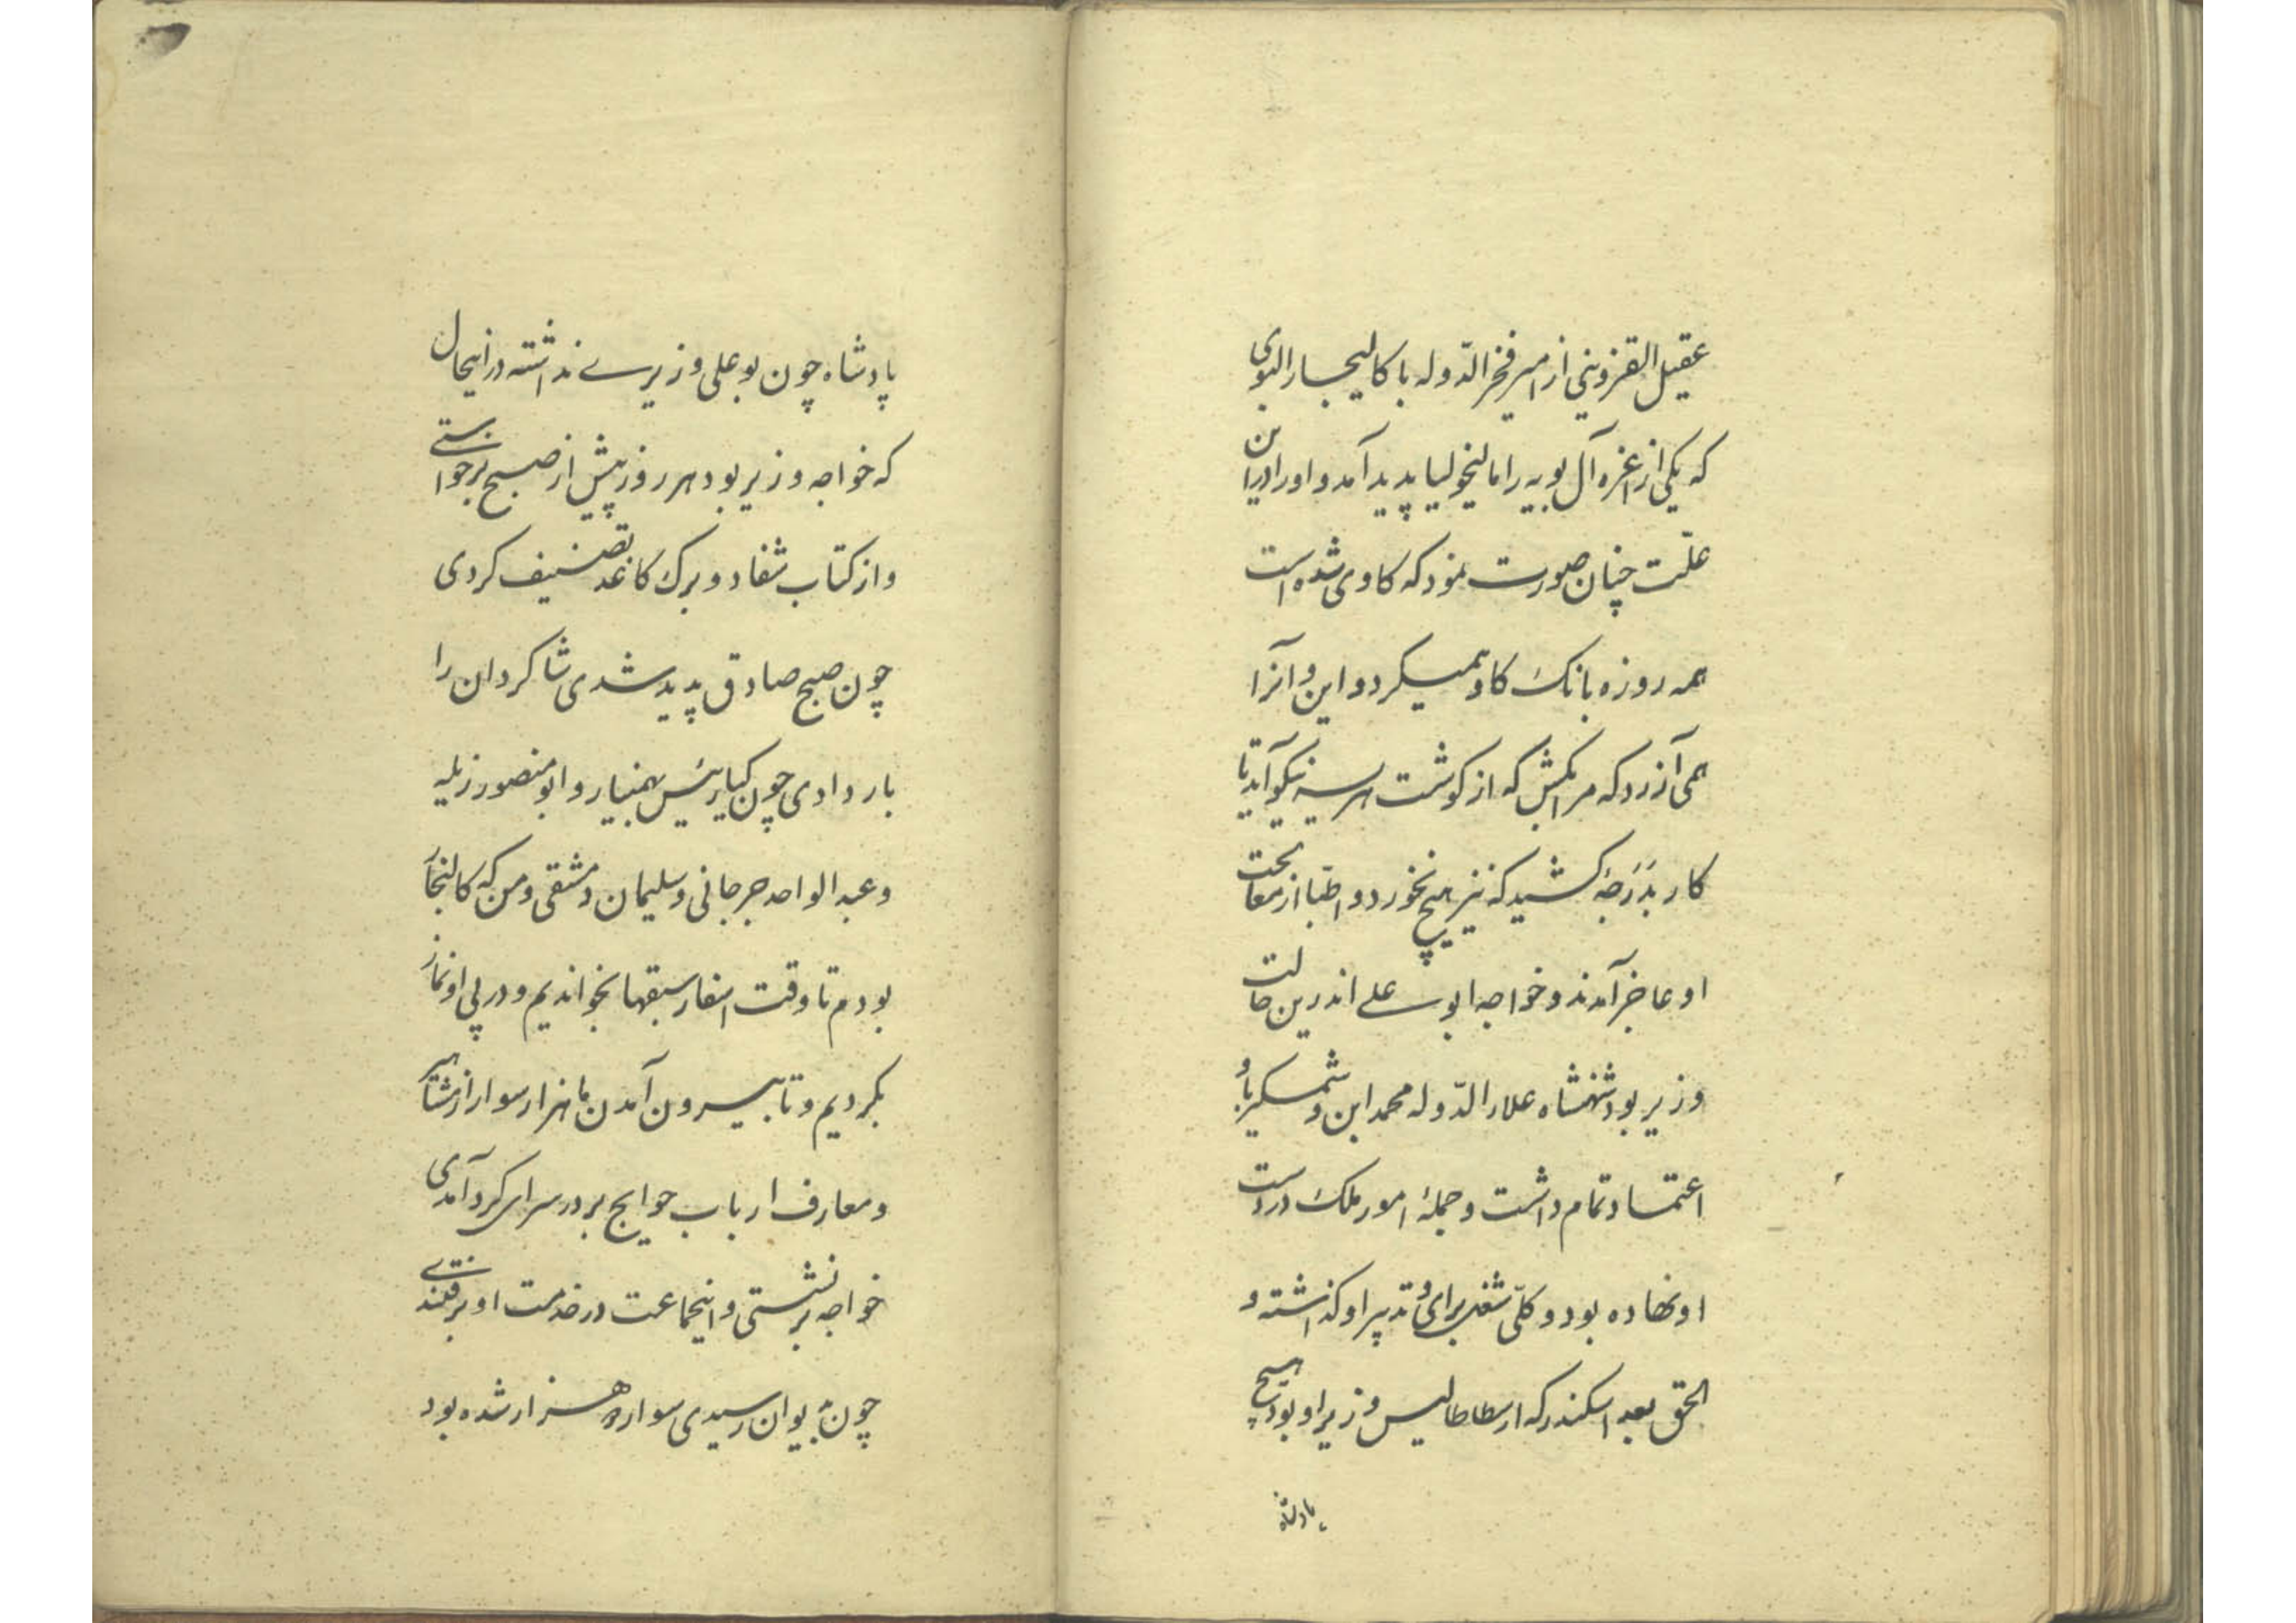 عقیل القزوینی از امیر فخر الدّوله باکالیجار البوی
که یکی از اعزه آل بویه را مالیخولیا پدید آمد و او را در این
علّت چنان صورت نمود که کاوی شده است
همه روزه بانک کاو همیکرد و این و آنرا
همی آزرد که مرا بکش که از کوشت من هریسه نیکو آید تا
کار بدَرَجهٔ کشید که نیز هیچ نخورد و اطبّا از معالجت
او عاجز آمدند و خواجه ابو علی اندرین حالت
وزیر بود شهنشاه علاء الدّوله محمد ابن وشمکیر باو
اعتماد تمام داشت و جملهٔ امور ملک در دست
او نهاده بود و کلّی شغل برای و تدبیر او کذاشته و
الحق بعد اسکندر که ارسطاطالیس وزیر او بود هیچ
پادشاه
پادشاه چون بو علی وزیری نداشته در اینحال
که خواجه وزیر بود هر روز پیش از صبح برخواستی
و از کتاب شفا دو برک کاغذ تصنیف کردی
چون صبح صادق پدید شدی شاکردان را
بار دادی چون کیا رئیس بهمنیار و ابو منصور زیله
و عبد الواحد جرجانی و سلیمان دمشقی و من که کالنجار
بودم تا وقت اسفار سبقها بخواندیم و در پی او نماز
بکردیم و تا بیرون آمدن ما هزار سوار از مشاهیر
و معارف ارباب حوایج بر در سرای کرد آمدی
خواجه بر نشستی و اینجماعت در خدمت او برفتندی
چون بدیوان رسیدی سوار دو هزار شده بود